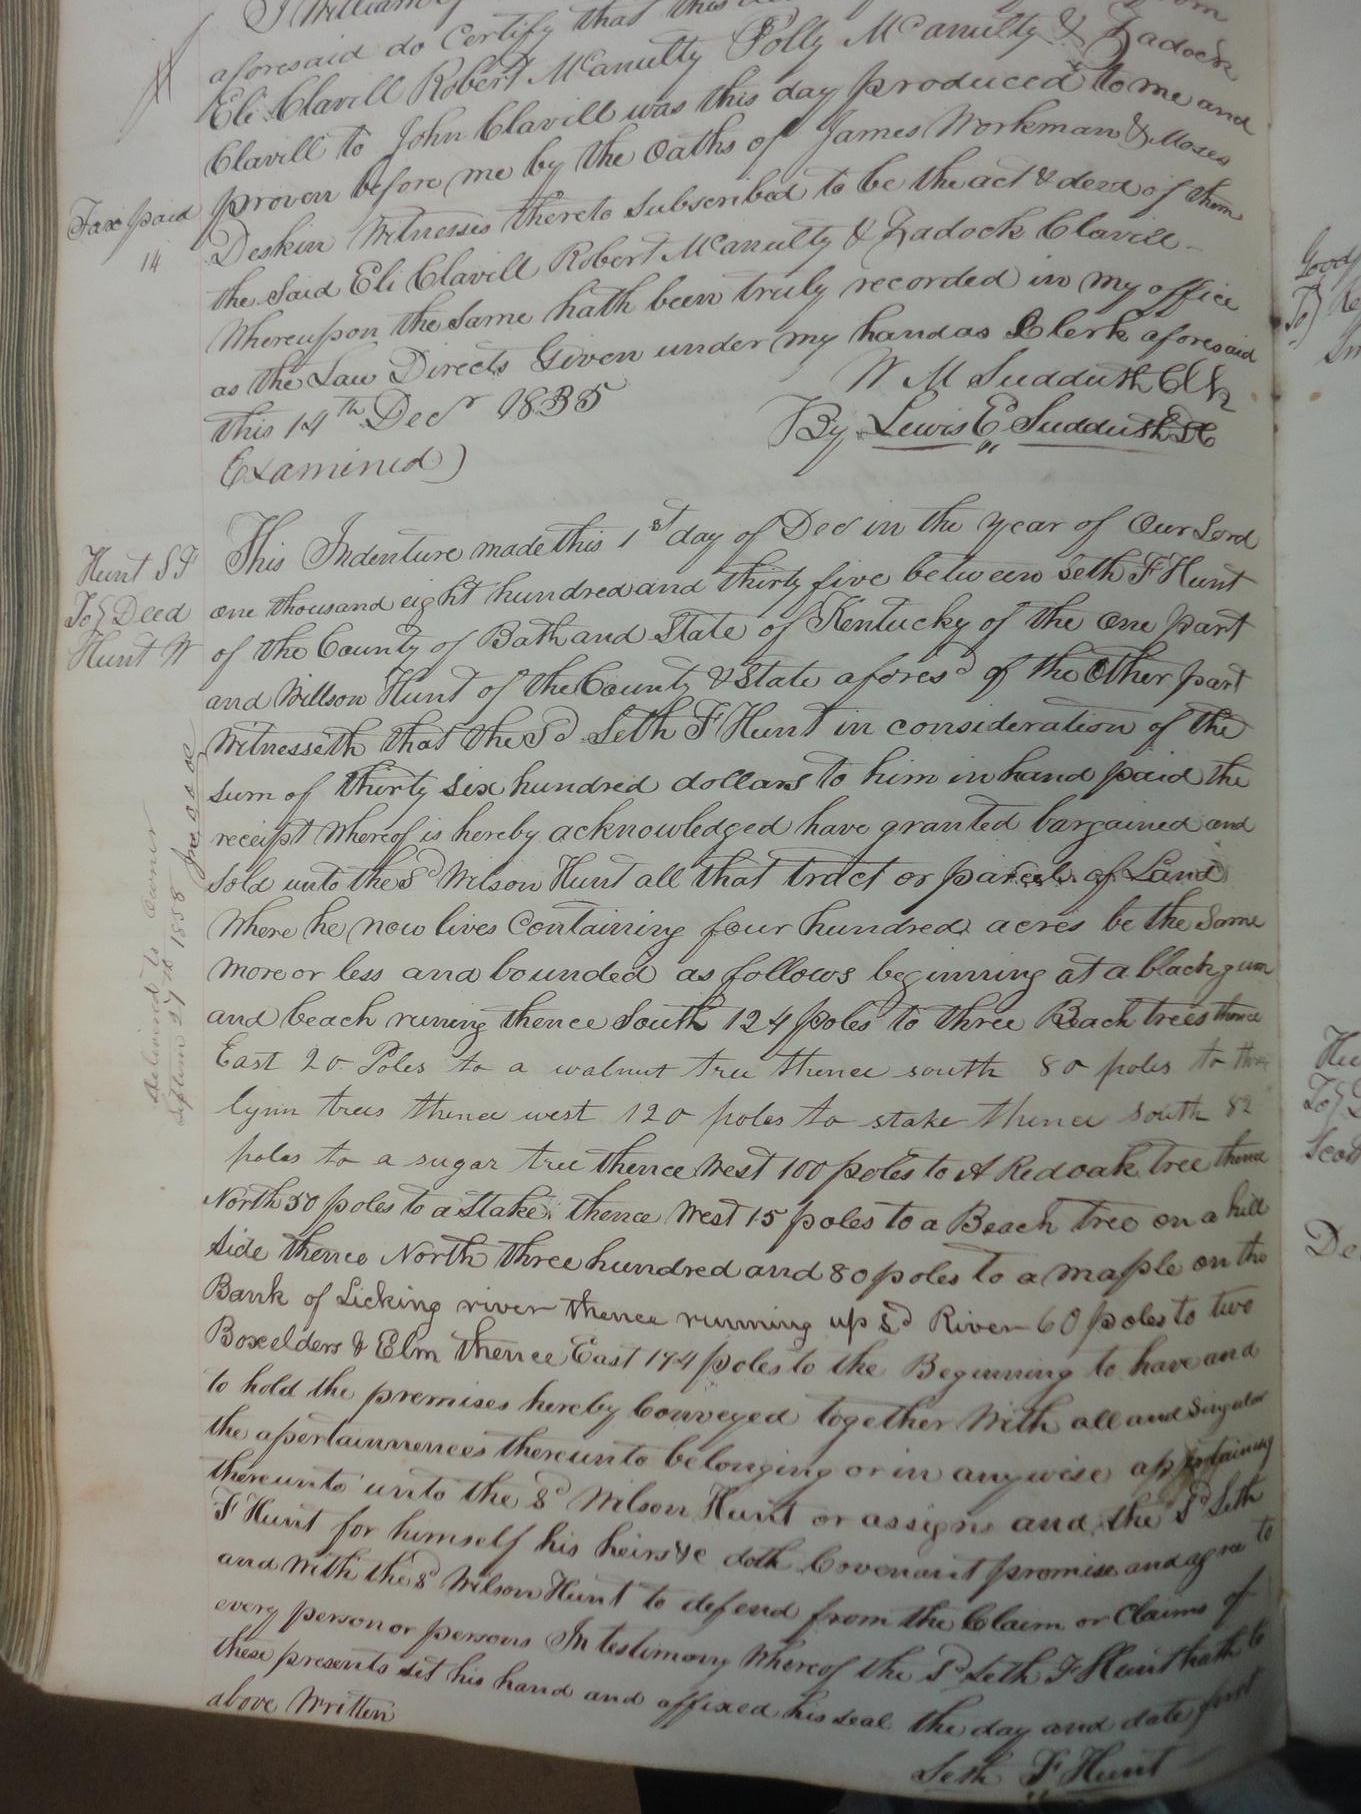 aforesaid do Certify that this
Eli Clavill Robert McAnulty Polly McAnulty & Zadock
Clavill to John Clavill was this day produced to me and
proven before me by the Oaths of James Workman & Moses
Tax paid
14
Deskin Witnesses thereto Subscribed to be the act & deed of them
the said Eli Clavill Robert McAnulty & Zadock Clavill
Whereupon the Same hath been truly recorded in my office
as the Law Directs Given under my hand as Clerk aforesaid
this 14th Decr 1835
W M Sudduth Clk
By Lewis E Sudduth DC
Examined)
Hunt S F
To } Deed
Hunt W
This Indenture made this 1st day of Dec in the year of Our Lord
one thousand eight hundred and thirty five between Seth F Hunt
of the County of Bath and State of Kentucky of the one part
and Willson Hunt of the County & State aforesd of the Other part
Witnesseth that the Sd Seth F Hunt in consideration of the
sum of thirty six hundred dollars to him in hand paid the
receipt Whereof is hereby acknowledged have granted bargained and
Sold unto the Sd Wilson Hunt all that tract or parcel of Land
Where he now lives Containing four hundred acres be the Same
more or less and bounded as follows beginning at a black gum
and beach runing thence South 124 poles to three Beach trees thence
East 20 Poles to a walnut tree thence south 80 poles to three
lynn trees thence west 120 poles to stake thence south 82
poles to a sugar tree thence West 100 poles to A Red oak tree thence
North 50 poles to a Stake thence West 15 poles to a Beach tree on a hill
side thence North three hundred and 80 poles to a maple on the
Bank of Licking river thence running up Sd River 60 poles to two
Boxelders & Elm thence East 194 poles to the Beginning to have and
to hold the premises hereby Conveyed together With all and Singular
the apertainnences thereunto belonging or in anywise appertaining
thereunto unto the Sd Wilson Hunt or assigns and the Sd Seth
F Hunt for himself his heirs &c doth Covenant promise and agree to
and With the Sd Wilson Hunt to defend from the Claim or Claims of
every person or persons In testimony Whereof the Sd Seth F Hunt hath to
these presents set his hand and affixed his seal the day and date first
above Written
Seth F Hunt